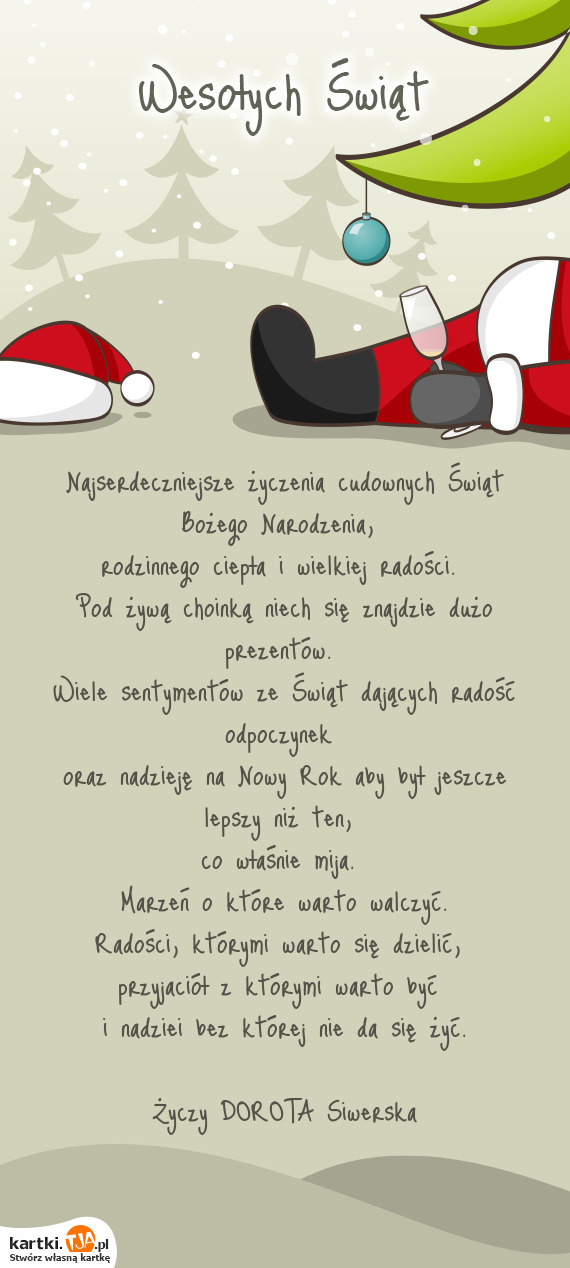 Wesołych Świąt
Najserdeczniejsze życzenia cudownych Świąt
Bożego Narodzenia,
rodzinnego ciepła i wielkiej radości.
Pod żywą choinką niech się znajdzie dużo
prezentów.
Wiele sentymentów ze Świąt dających radość
odpoczynek
oraz nadzieję na Nowy Rok aby był jeszcze
lepszy niż ten,
co właśnie mija.
Marzeń o które warto walczyć.
Radości, którymi warto się dzielić,
przyjaciół z którymi warto być
i nadziei bez której nie da się żyć.
Życzy DOROTA Siwerska
kartki.TJA.pl
Stwórz własną kartkę